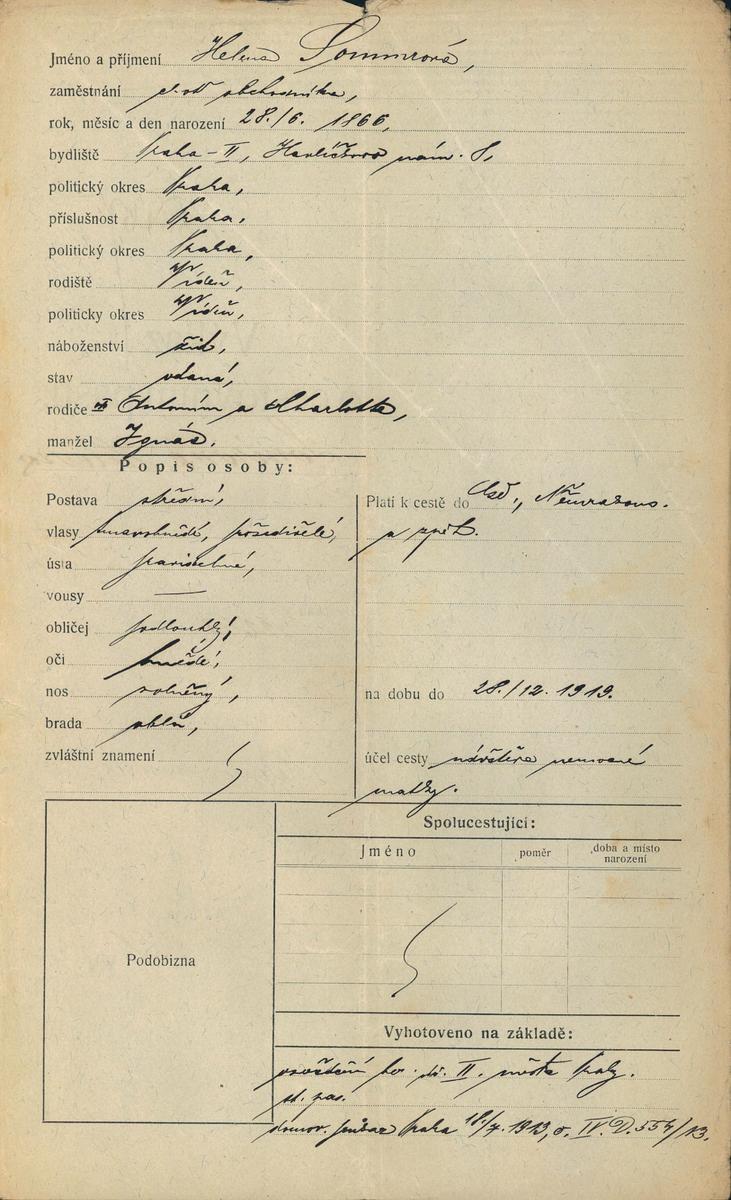 Jméno a příjmení Helena Sommrová,
zaměstnání choť obchodníka,
rok, měsíc a den narození 28./6. 1866,
bydliště Praha-II, Havlíčkovo nám. 8,
politický okres Praha,
příslušnost Praha,
politický okres Praha,
rodiště Vídeň,
politicky okres Vídeň,
náboženství žid,
stav vdaná,
rodiče Antonín a Charlotta,
manžel Ignás.
Popis osoby:
Postava střední,
vlasy tmavohnědé, prošedivělé,
ústa pravidelné,
vousy —
obličej podlouhlý,
oči hnědé,
nos
brada oblá,
zvláštní znamení
Platí k cestě do
a zpět.
na dobu do 28./12. 1919.
účel cesty návštěva nemocné
matky.
Podobizna
Spolucestující:
Jméno poměr doba a místo narození
Vyhotoveno na základě:
osvědčení II. města Prahy.
st. pas.
domov. průkaz Praha 18/7. 1913, č. IV. D. 554/13.